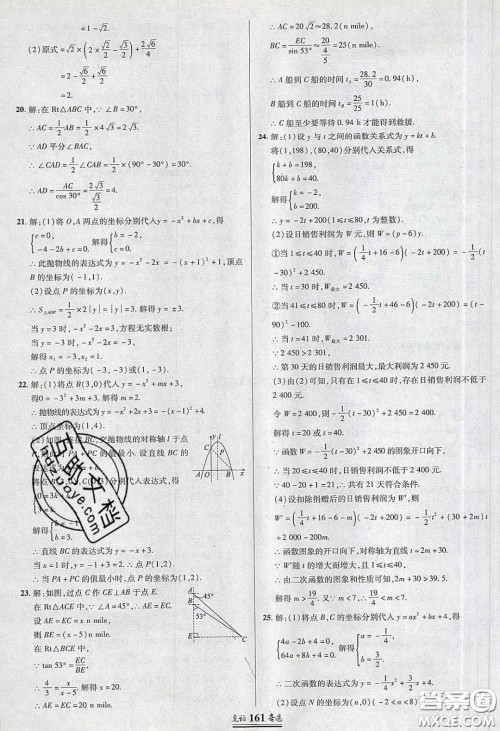 =1-√2.
(2)原式=√2×(2×√2/2-√3/2)+√6/2
=2-√6/2+√6/2
=2.
20. 解:在Rt△ABC中,∵∠B=30°,
∴AC=1/2AB=1/2×4√3=2√3.
∵AD平分∠BAC,
∴∠CAD=1/2∠CAB=1/2×(90°-30°)=30°.
∴AD=AC/cos30°=2√3/(√3/2)=4.
21. 解:(1)将O,A两点的坐标分别代入y=-x²+bx+c,得
{c=0, -4-2b+c=0. 解得{b=-2, c=0.
∴此抛物线的表达式为y=-x²-2x=-(x+1)²+1,顶点
B的坐标为(-1,1).
(2)设点P的坐标为(x,y).
∵S△AOP=1/2×2|y|=3,∴|y|=3.∴y=±3.
当y=3时,-x²-2x=3,方程无实数根;
当y=-3时,-x²-2x=-3.
解得x₁=1,x₂=-3.
∴点P的坐标为(1,-3)或(-3,-3).
22. 解:(1)将点B(3,0)代入y=-x²+mx+3,得
0=-3²+3m+3.解得m=2.
∴抛物线的表达式为y=-x²+2x+3=-(x-1)²+4.
∴顶点坐标为(1,4).
(2)如图,连接BC,交抛物线的对称轴l于点
P,此时PA+PC的值最小.设直线BC的
表达式为
将点B(3,0),C(0,3)分别代入表达式,得
{0=3k+b, 3=b.
解得{k=-1, b=3.
∴直线BC的表达式为y=-x+3.
当x=1时,y=-1+3=2.∴点P(1,2).
∴当PA+PC的值最小时,点P的坐标为(1,2).
23. 解:如图,过点C作CE⊥AB,交AB的延长线于点E.
在Rt△ACE中,∵∠A=45°,
∴AE=EC.
设AE=EC=x n mile,
则BE=(x-5)n mile.
在Rt△BCE中,
∵tan53°=EC/BE,
∴4/3=x/(x-5).解得x=20.∴AE=EC=20 n mile.
∴AC=20√2≈28.2(n mile),
BC=EC/sin53°≈20/(4/5)=25(n mile).
∴A船到C船的时间tA≈28.2/30=0.94(h),
B船到C船的时间tB=25/25=1(h).
∴C船至少要等待0.94 h才能得到救援.
24. 解:(1)设y与t之间的函数关系式为y=kt+b.
将(1,198),(80,40)分别代入关系式,得
{k+b=198, 80k+b=40.
解得{k=-2, b=200.
∴y=-2t+200(1≤t≤80,t为整数).
(2)设日销售利润为W元,则W=(p-6)y.
①当1≤t≤40时,W=(1/4t+16-6)(-2t+200)=-1/2(t
-30)²+2450.
∴当t=30时,W最大=2450.
②当41≤t≤80时,W=(-1/2t+46-6)(-2t+200)=(t
-90)²-100.
∴当t=41时,W最大=2301.
∵2450>2301,
∴第30天的日销售利润最大,最大利润为2450元.
(3)由(2)可知,在1≤t≤40时,存在日销售利润不低于
2400元.
令W=2400,即-1/2(t-30)²+2450=2400.
解得t=20或t=40.
∵函数W=-1/2(t-30)²+2450的图象开口向下,
∴当20≤t≤40时,日销售利润不低于2400元.
∵t为整数,∴共有21天符合条件.
(4)设扣除捐赠后的日销售利润为W'元,则
W'=(1/4t+16-6-m)(-2t+200)=-1/2t²+(30+2m)t+
2000-200m.
∴函数图象开口向下,对称轴为直线t=2m+30.
∵W'随t的增大而增大,且1≤t≤40,
∴由二次函数的图象和性质可知,2m+30>39.5.
解得m>19/4.又∵m<7,∴19/4<m<7.
25. 解:(1)将点B,C的坐标分别代入y=ax²+bx+4,得
{4a-2b+4=0, 64a+8b+4=0. 解得{a=-1/4, b=3/2.
∴二次函数的表达式为y=-1/4x²+3/2x+4.
(2)设点N的坐标为
161